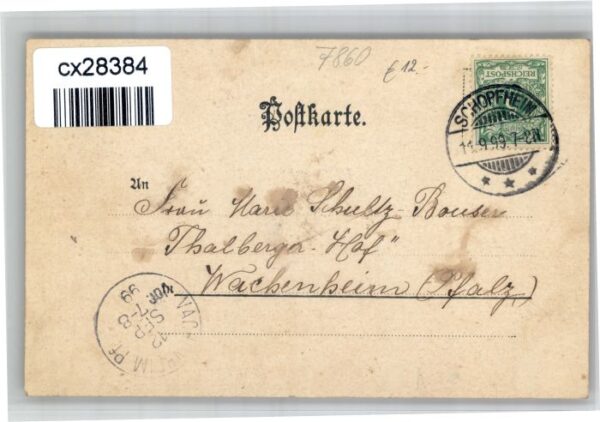 cx28384
7860
€ 12.-
REICHSPOST
SCHOPFHEIM
11.9.99.7-8N
Postkarte.
An
Frau Marie Schultz-Bouser
Thalberger-Hof"
Wachenheim (Pfalz)
VOR
7-8
12 SEP
99